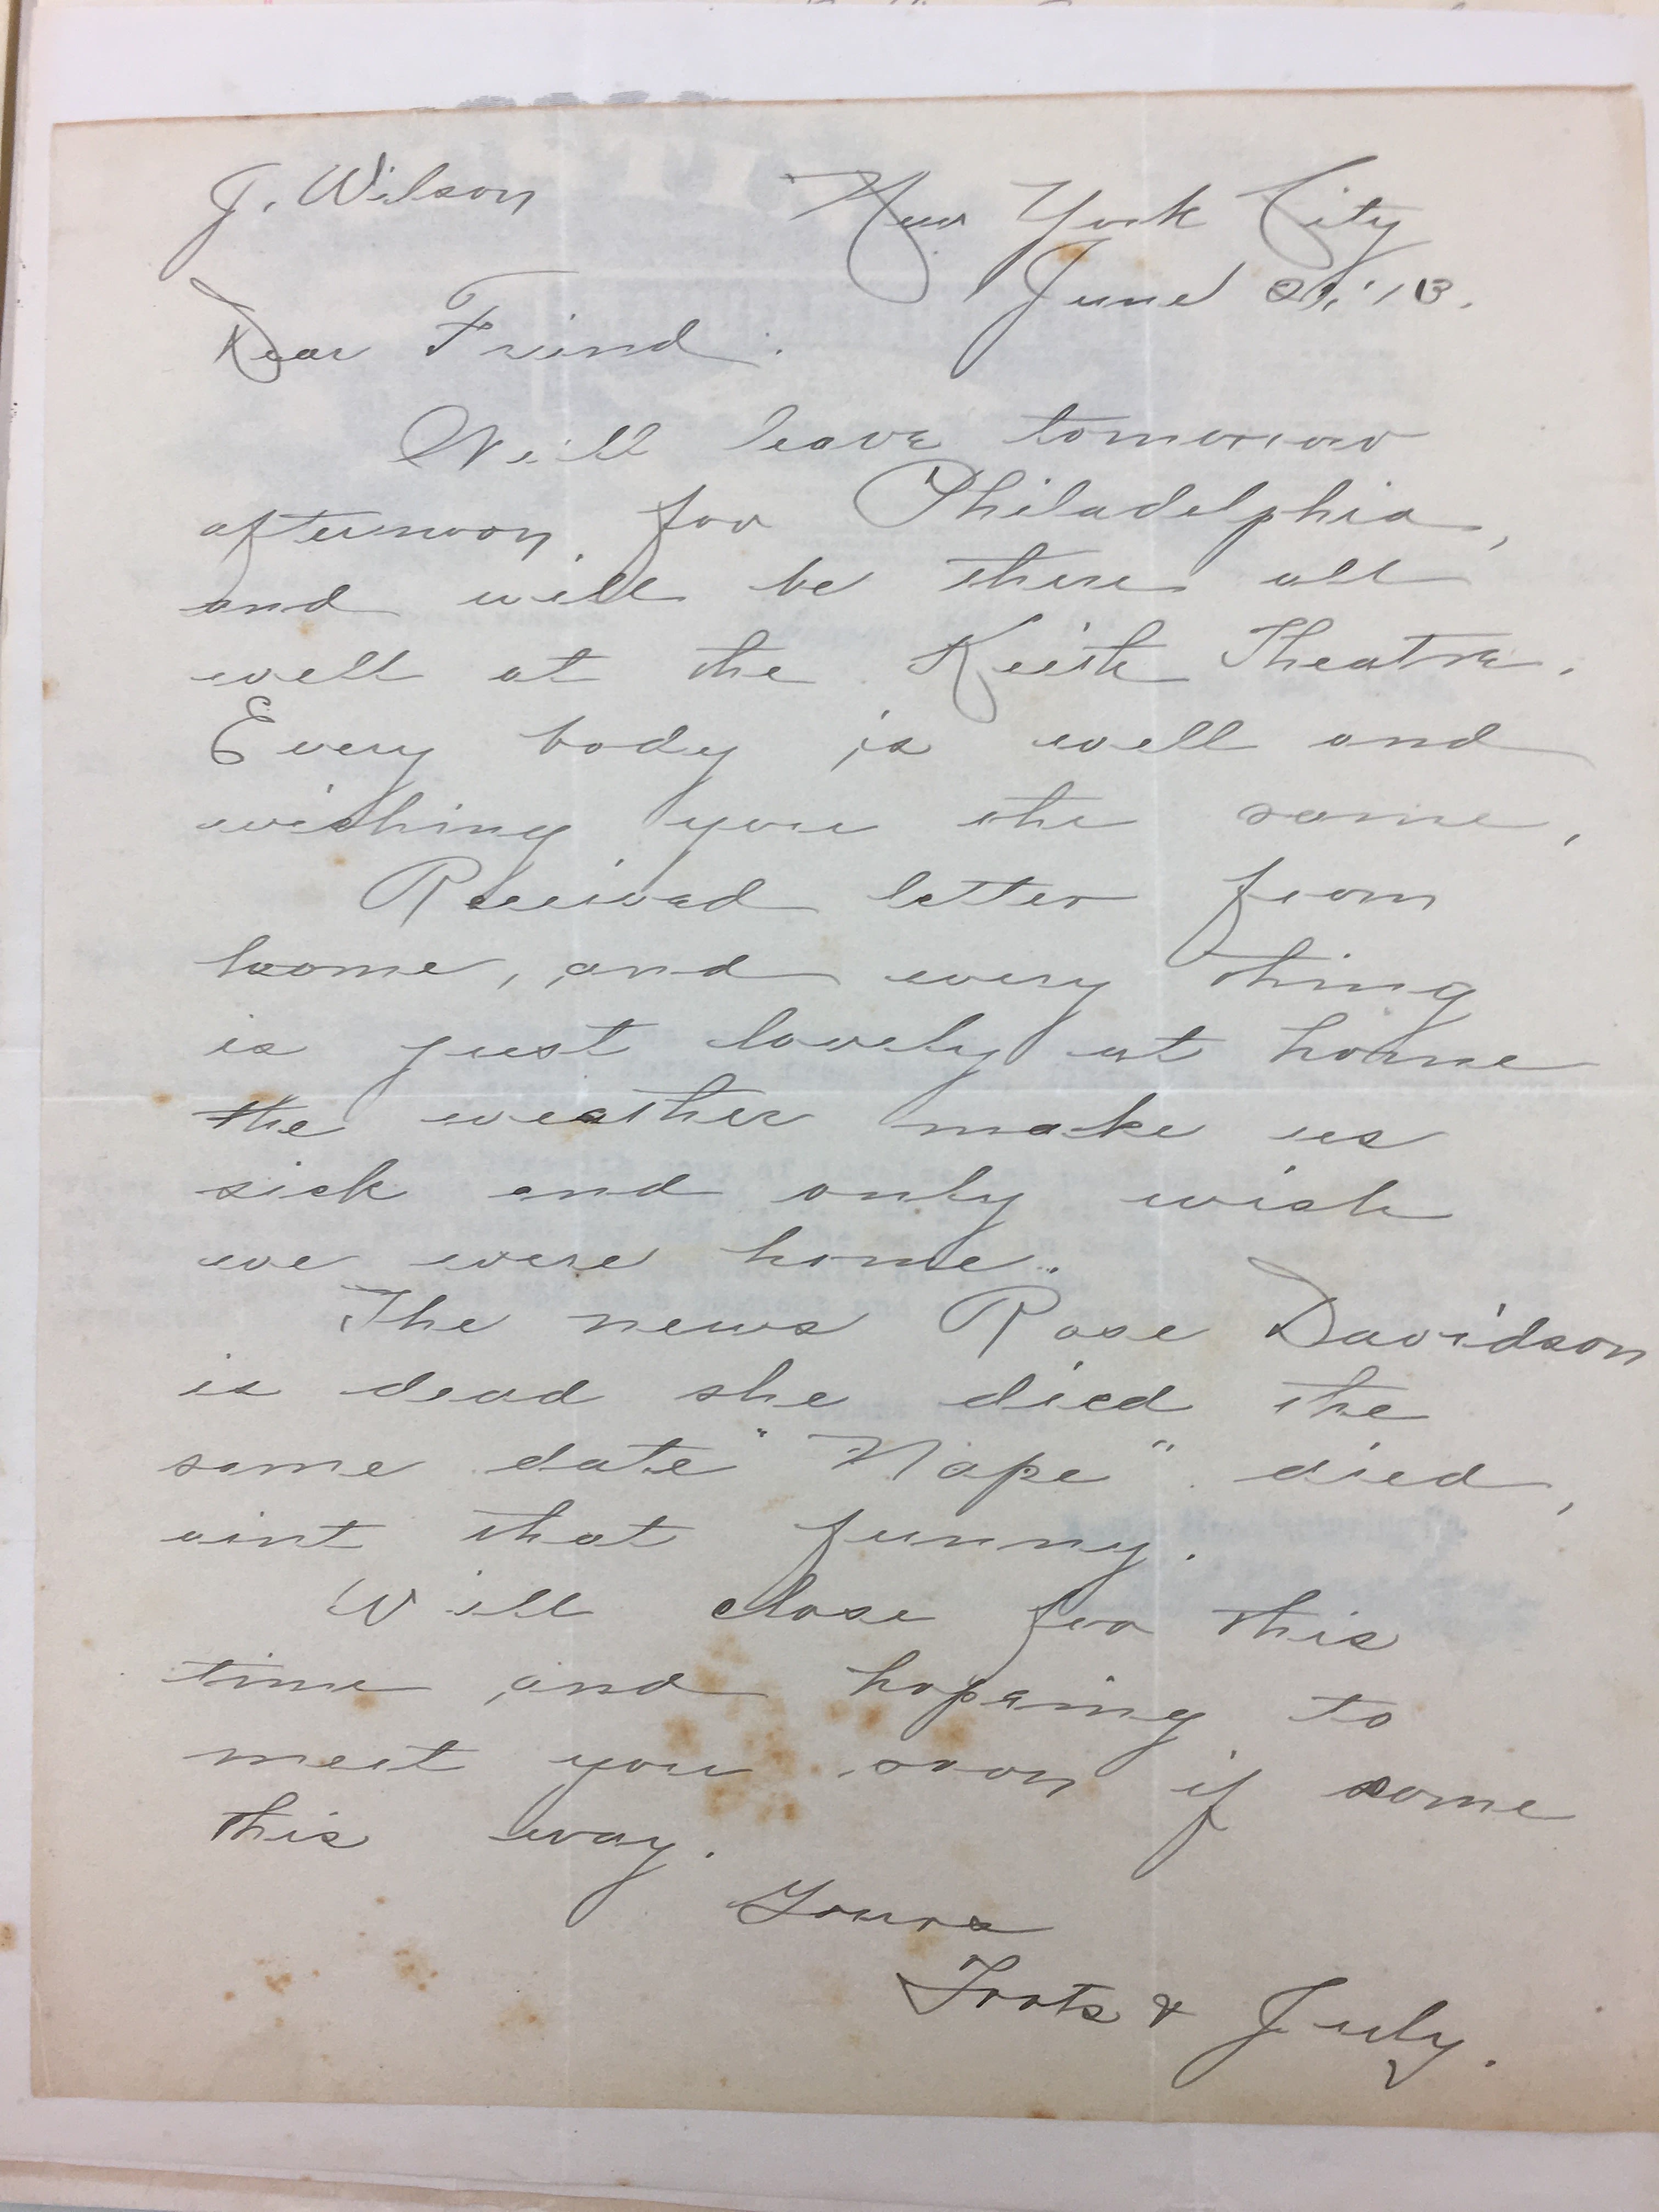 J. Wilson
New York City
June 21, '13.
Dear Friend.
Will leave tomorrow
afternoon for Philadelphia,
and will be there all
well at the Keith Theatre.
Every body is well and
wishing you the same,
Received letter from
home, and every thing
is just lovely at home
the weather make us
sick and only wish
we were home.
The news Rose Davidson
is dead she died the
same date "Nape" died,
aint that funny.
Will close for this
time and hopeing to
meet you soon if some
this way.
Yours
Toots & July.